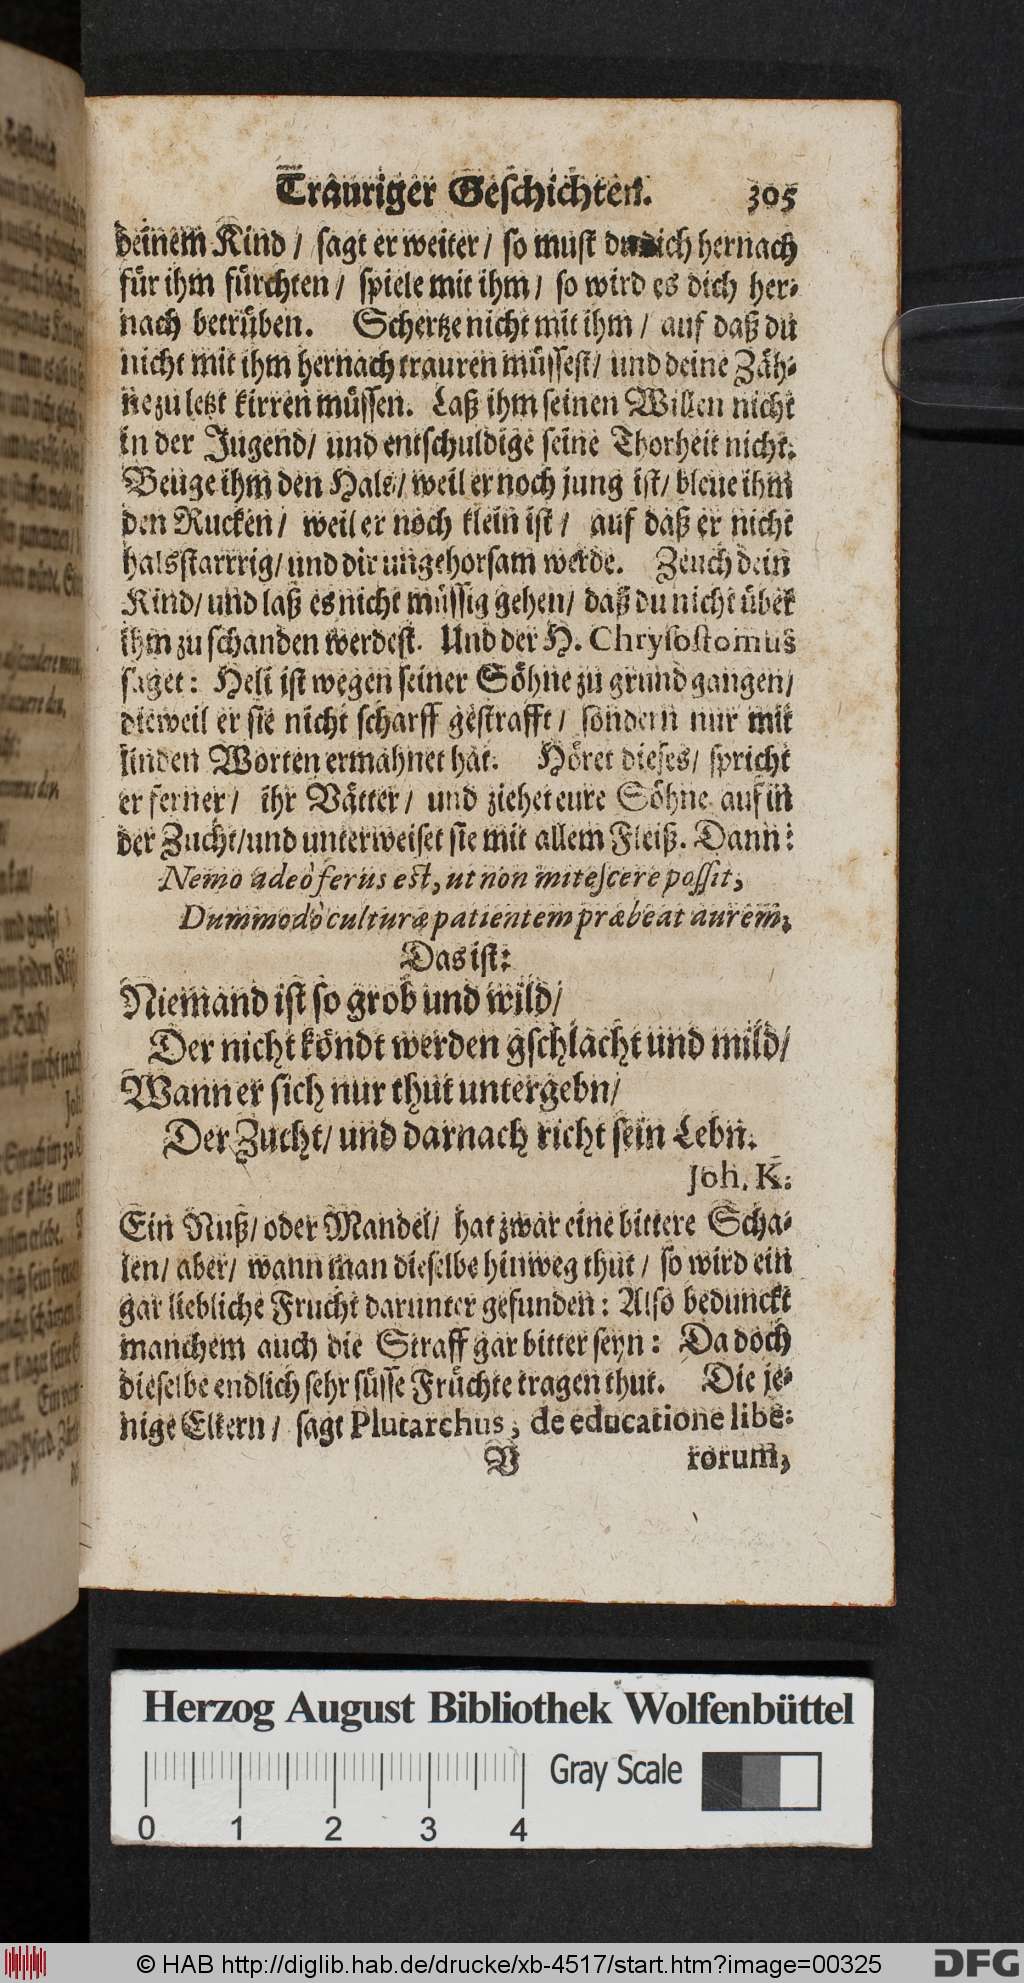 Trauriger Geschichten. 305
deinem Kind / sagt er weiter / so must du dich hernach
für ihm fürchten / spiele mit ihm / so wird es dich her-
nach betrüben. Schertze nicht mit ihm / auf daß du
nicht mit ihm hernach trauren müssest / und deine Zäh-
ne zu letzt kirren müssen. Laß ihm seinen Willen nicht
in der Jugend / und entschuldige seine Thorheit nicht.
Beuge ihm den Hals / weil er noch jung ist / bleue ihm
den Rucken / weil er noch klein ist / auf daß er nicht
halsstarrrig / und dir ungehorsam werde. Zeuch dein
Kind / und laß es nicht müssig gehen / daß du nicht über
ihm zu schanden werdest. Und der H. Chrysostomus
saget: Heli ist wegen seiner Söhne zu grund gangen /
dieweil er sie nicht scharff gestrafft / sondern nur mit
linden Worten ermahnet hat. Höret dieses / spricht
er ferner / ihr Vätter / und ziehet eure Söhne auf in
der Zucht / und unterweiset sie mit allem Fleiß. Dann:
Nemo adeò ferus est, ut non mitescere possit,
Dummodò culturæ patientem præbeat aurem,
Das ist:
Niemand ist so grob und wild /
Der nicht köndt werden gschlacht und mild /
Wann er sich nur thut untergebn /
Der Zucht / und darnach richt sein Lebn.
Joh. K.
Ein Nuß / oder Mandel / hat zwar eine bittere Scha-
len / aber / wann man dieselbe hinweg thut / so wird ein
gar liebliche Frucht darunter gefunden: Also bedunckt
manchem auch die Straff gar bitter seyn: Da doch
dieselbe endlich sehr süsse Früchte tragen thut. Die je-
nige Eltern / sagt Plutarchus, de educatione libe-
V rorum,
Herzog August Bibliothek Wolfenbüttel
Gray Scale
0 1 2 3 4
© HAB http://diglib.hab.de/drucke/xb-4517/start.htm?image=00325
DFG